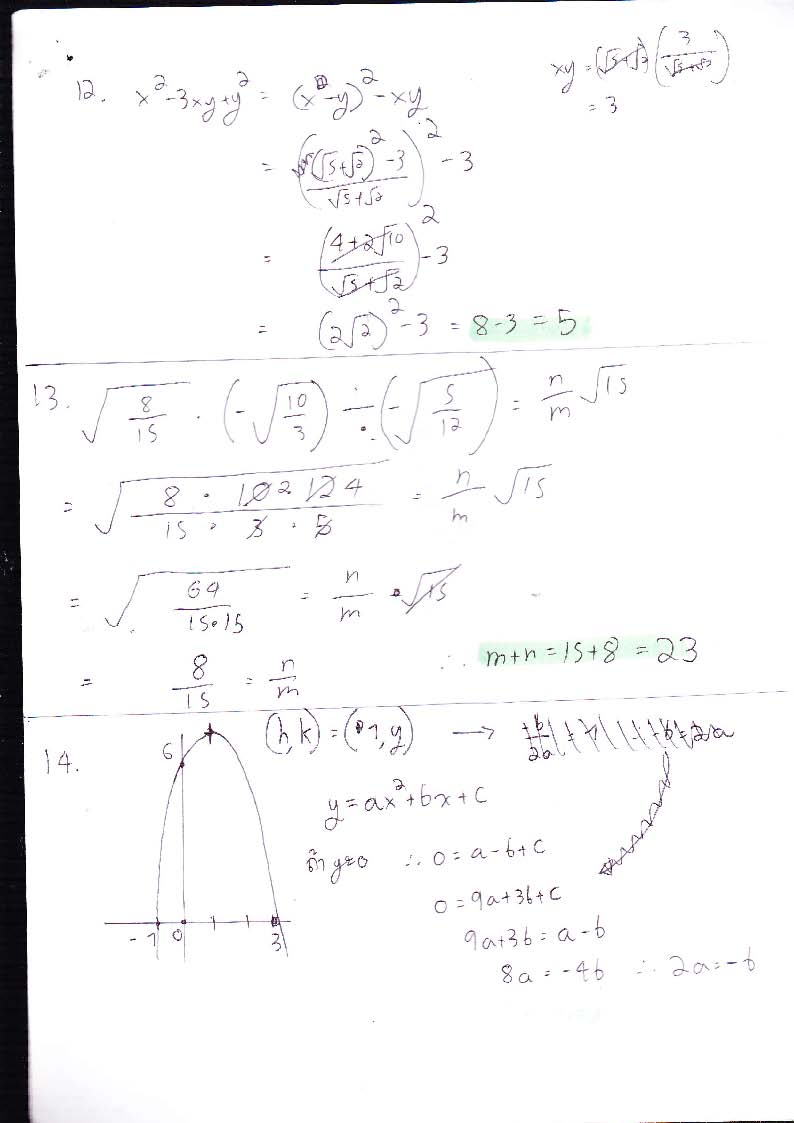 12. x² - 3xy + y² = (x - y)² - xy
xy = (√5+√2) (3/(√5+√2))
= 3
= (((√5+√2)² - 3)/(√5+√2))² - 3
= ((4+2√10)/(√5+√2))² - 3
= (2√2)² - 3 = 8-3 = 5
13. √(8/15) · (-√(10/3)) ÷ (-√(5/12)) = n/m √15
= √((8 · 10 2 12 4)/(15 · 3 · 5)) = n/m √15
= √(64/(15·15)) = n/m · √15
= 8/15 = n/m ∴ m+n = 15+8 = 23
14.
6
-1 0 3
(h,k) = (1,y) →
y = ax² + bx + c
ถ้า y=0 ∴ 0 = a-b+c
0 = 9a+3b+c
9a+3b = a-b
8a = -4b ∴ 2a = -b